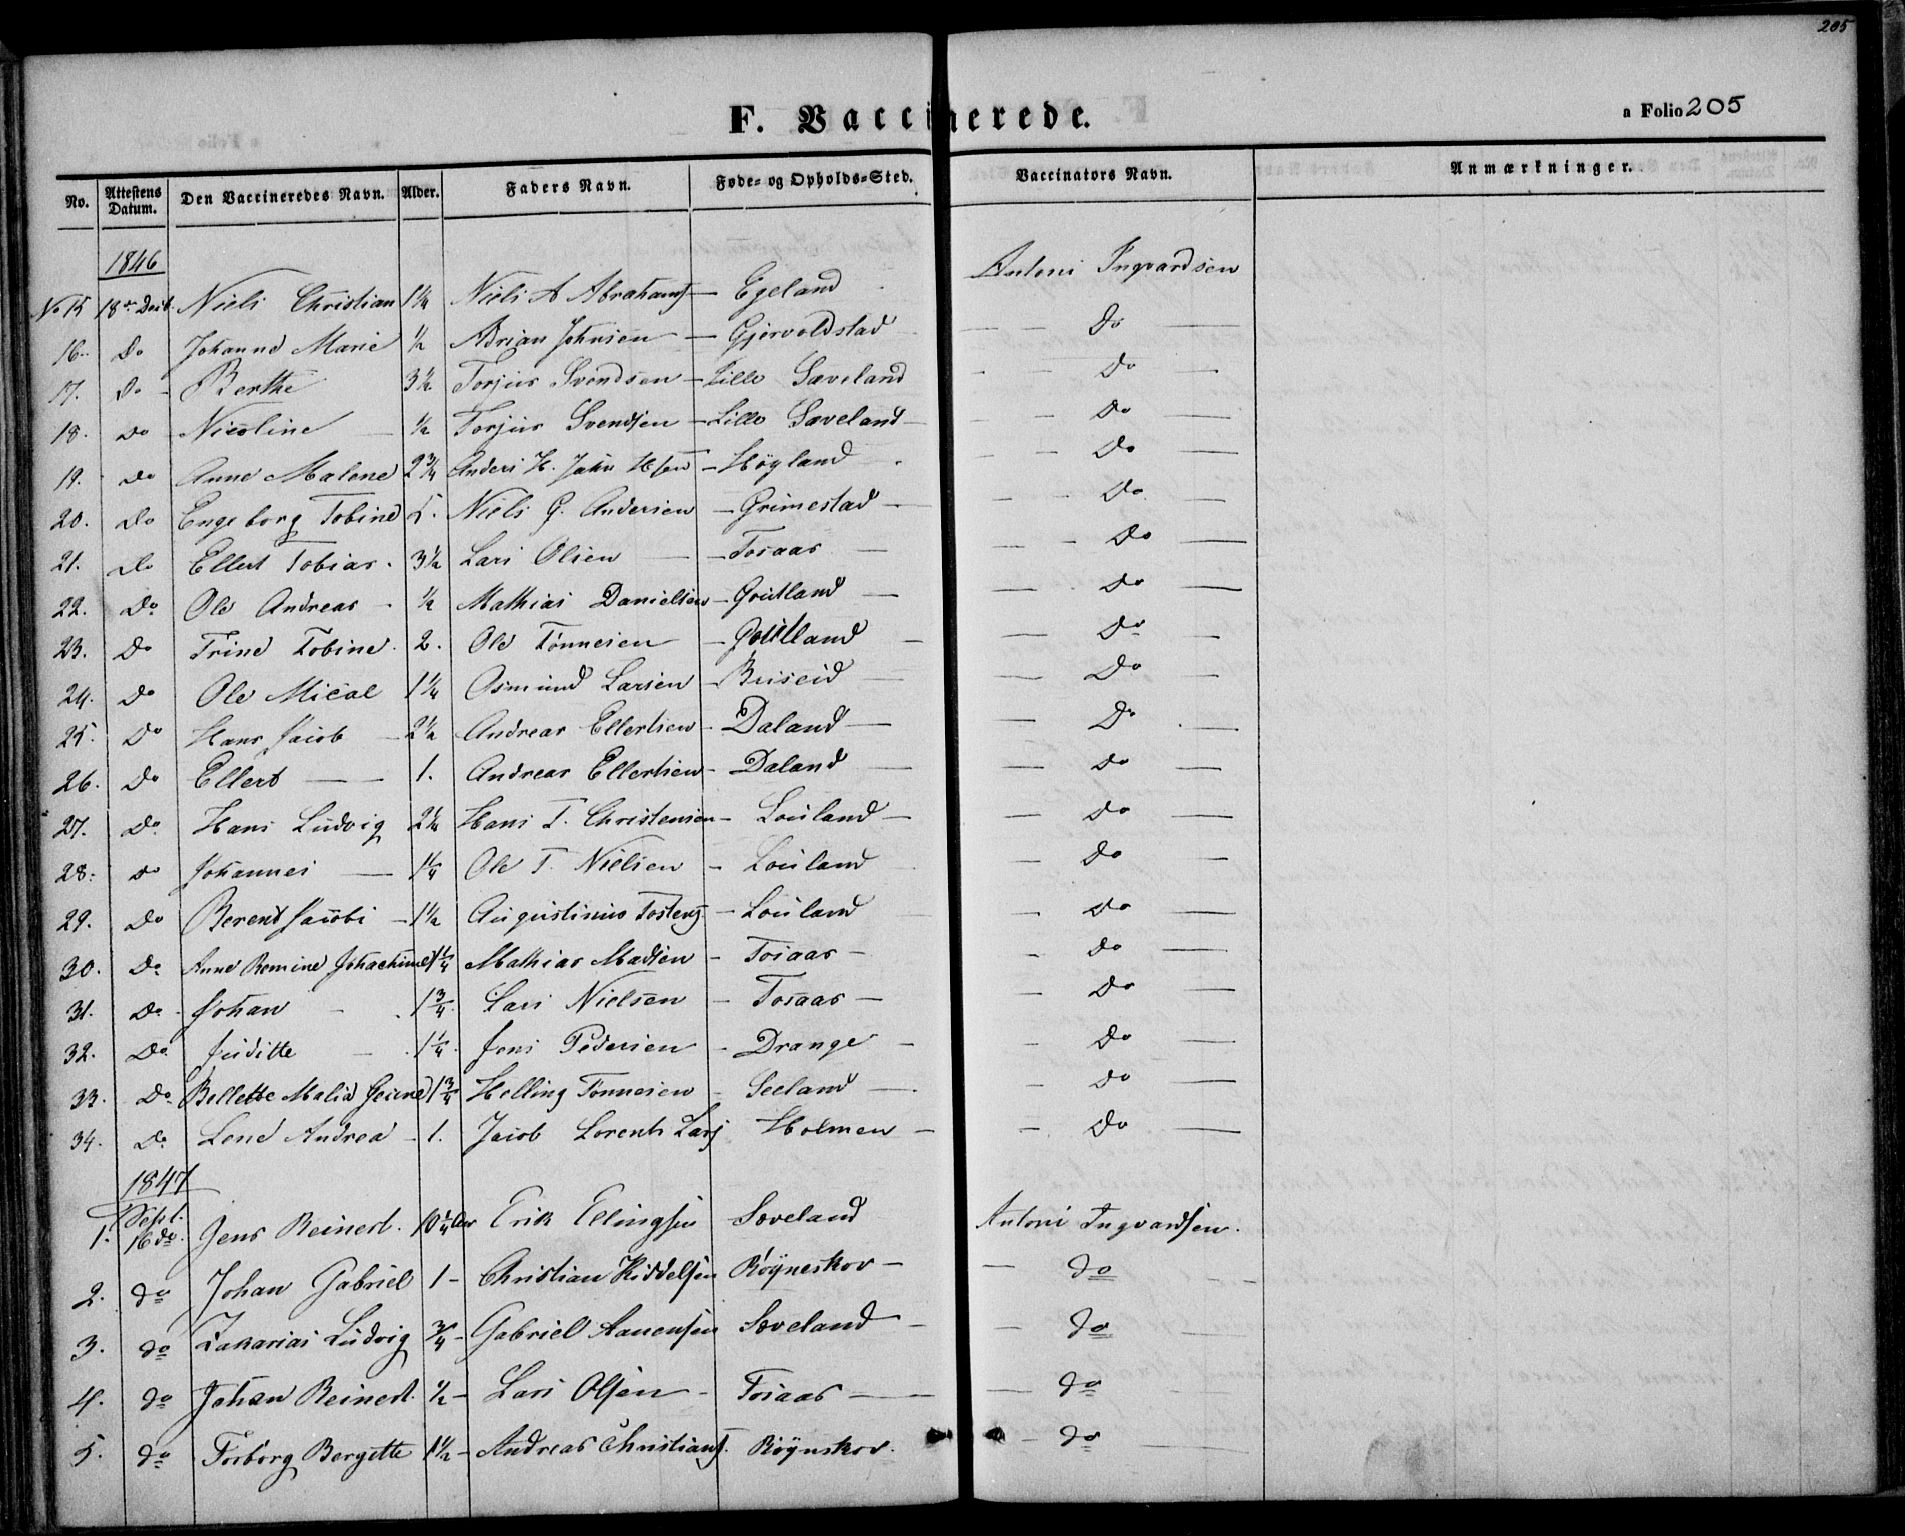 205
F. Vaccinerede.
a Folio 205
No. Attestens Datum. Den Vaccineredes Navn. Alder. Faders Navn. Føde- og Opholds-Sted. Vaccinators Navn. Anmærkninger.
1846
No 15 18de Decb. Niels Christian 1¼ Niels A Abrahams — Egeland Antoni Ingvardsen
16. Do Johanne Marie ½ Adrian Johnsen — Gjervoldstad — — Do —
17. Do - Berthe 3½ Torjus Svendsen — Lille Sæveland — — Do —
18. Do Nicoline — ½ Torjus Svendsen — Lille Sæveland — — Do —
19. Do Anne Malene 2¾ Anders H. — Høyland — — Do —
20. Do Engeborg Tobine 5. Niels G. Andersen — Grimestad — — — Do —
21. Do Ellert Tobias. 3½ Lars Olsen — Tosaas — — — Do —
22. Do Ole Andreas - ½ Mathias Danielsen — Goutland — — Do —
23. Do Trine Tobine. 2. Ole Tønnesen — Goutland — — Do —
24. Do Ole Mical 1¼ Osmund Larsen — Buseid — — Do —
25. Do Hans Jacob — 2½ Andreas Ellertsen - Daland — — Do —
26. Do Ellert — 1. Andreas Ellertsen - Daland — — Do —
27. Do Hans Ludvig 2¼ Hans T. Christensen - Louland — — Do —
28. Do Johannes — 1¼ Ole T. Nielsen - Louland — Do —
29. Do Berent Jacobi — 1½ Augustinus Tostens — Louland — Do —
30. Do Anne Romine Johachime 1¼ Mathias Madsen - Tosaas — — Do —
31. Do - Johan - 1¾ Lars Nielsen - Tosaas — — Do —
32. Do Juditte — 1¼ Jens Pedersen - Drange — — Do —
33. Do Bellette Malia 1¾ Helling Tønnesen - Seeland — — Do —
34. Do Lene Andrea - 1. Jacob Lorents Lars Holmen — — Do —
1847
1. Sept. 16de. Jens Reinert. 10¼ Aar Erik Elingsen Søveland Antoni Ingvardsen.
2. do Johan Gabriel 1 - Christian Kiddelsen Røyneskov — — do —
3. do Zakarias Ludvig ¾ - Gabriel Aanensen Søveland — — do —
4. do Johan Reinert. ½ - Lars Olsen - Tosaas — — do —
5. do Torborg Bergitte 1½ - Andreas Christians. Røynskov. — do —